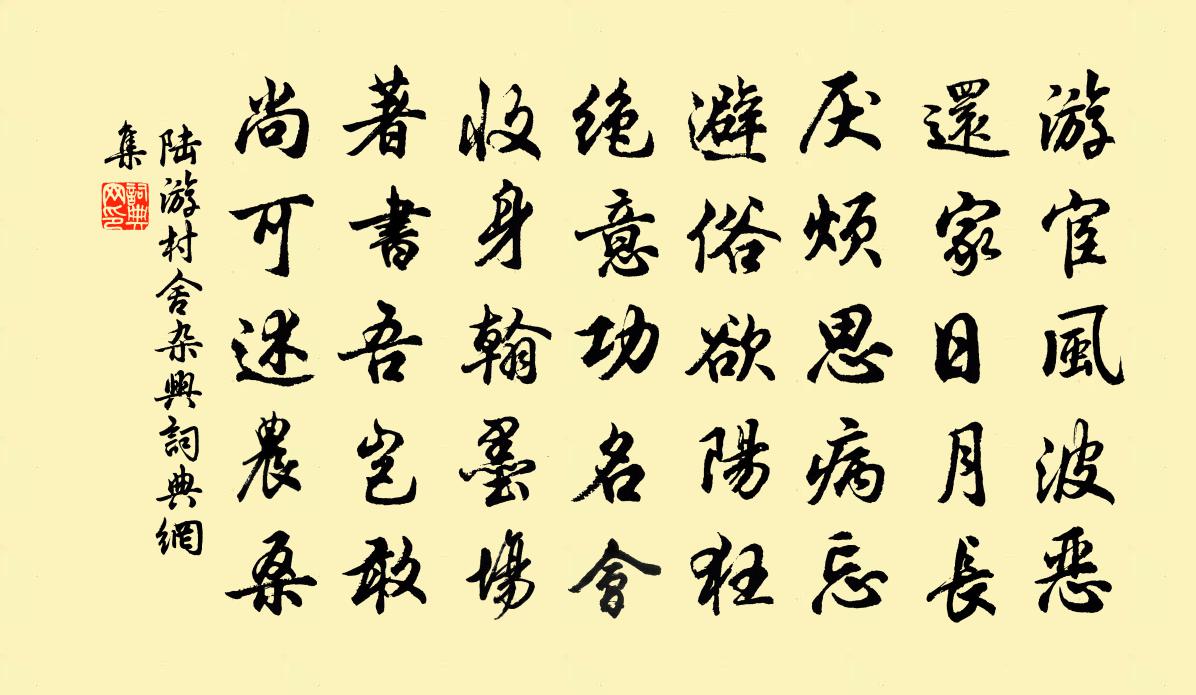 游宦風波恶
還家日月長
厌烦思病忘
避俗欲陽狂
绝意功名會
收身翰墨場
著書吾岂敢
尚可述農桑
陆游村舍杂興詞典網
集
詞典网印